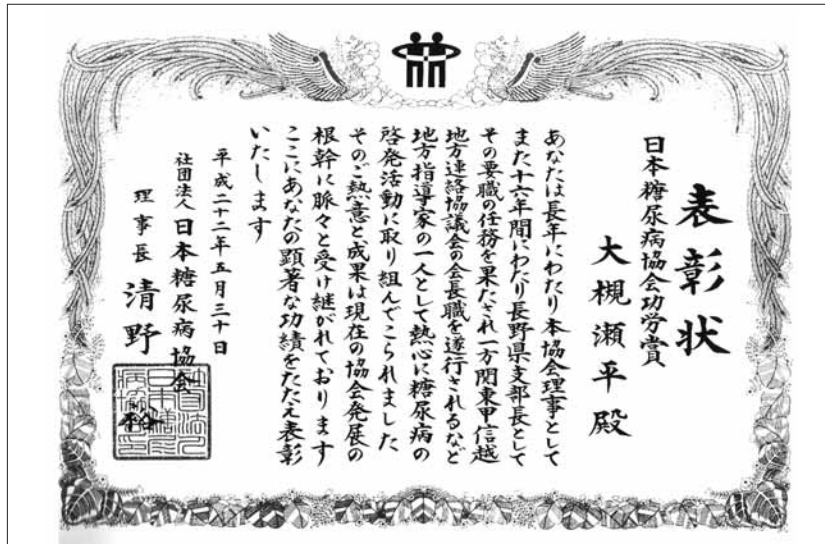 表彰状
日本糖尿病協会功労賞
大槻瀬平殿
あなたは長年にわたり本協会理事として
また十六年間にわたり長野県支部長として
その要職の任務を果たされ一方関東甲信越
地方連絡協議会の会長職を遂行されるなど
地方指導家の一人として熱心に糖尿病の
啓発活動に取り組んでこられました
そのご熱意と成果は現在の協会発展の
根幹に脈々と受け継がれております
ここにあなたの顕著な功績をたたえ表彰
いたします
平成二十二年五月三十日
社団法人日本糖尿病協会
理事長 清野裕